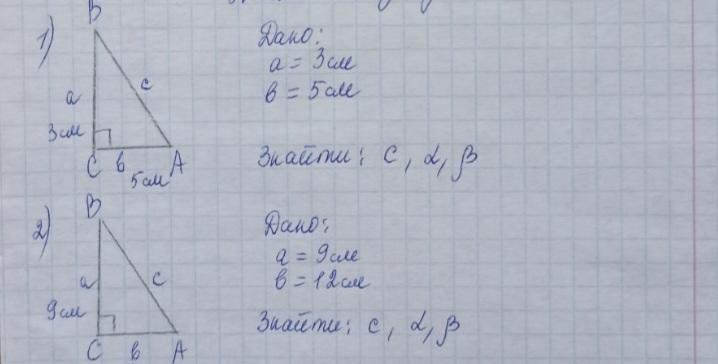 1)
B
a
c
3см
C
в
A
5см
Дано:
a = 3см
в = 5см
Знайти: c, α, β
2)
B
a
c
9см
C
в
A
Дано:
a = 9см
в = 12см
Знайти: c, α, β